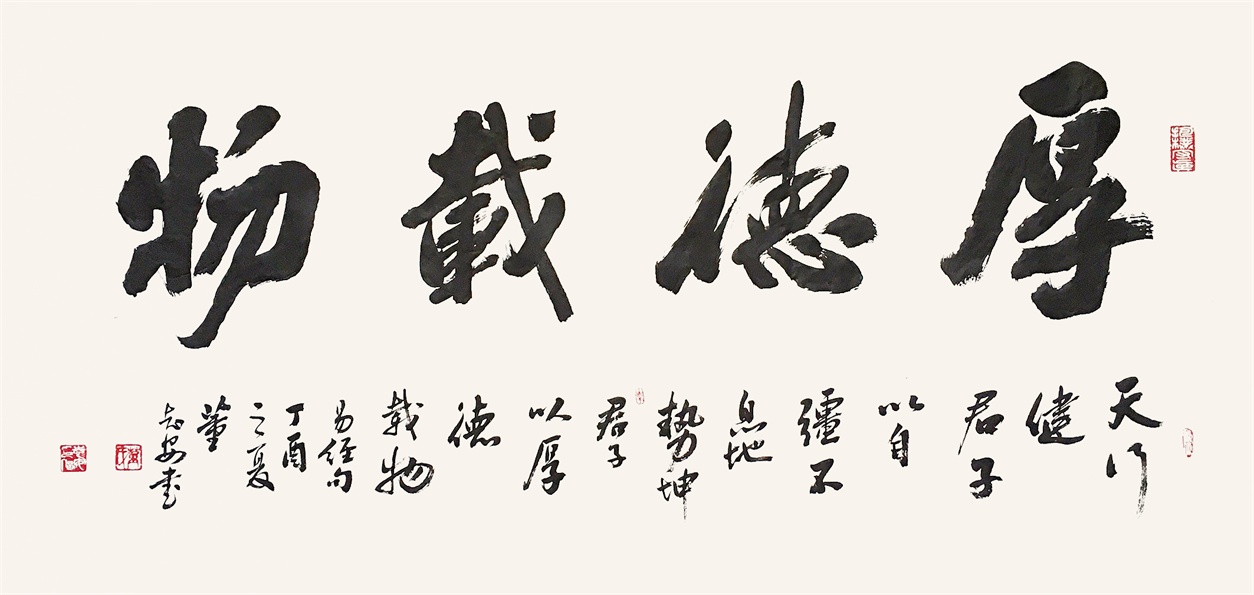 厚德載物
天行
健
君子
以自
彊不
息地
勢坤
君子
以厚
德
載物
易經句
丁酉
之夏
董
志安書